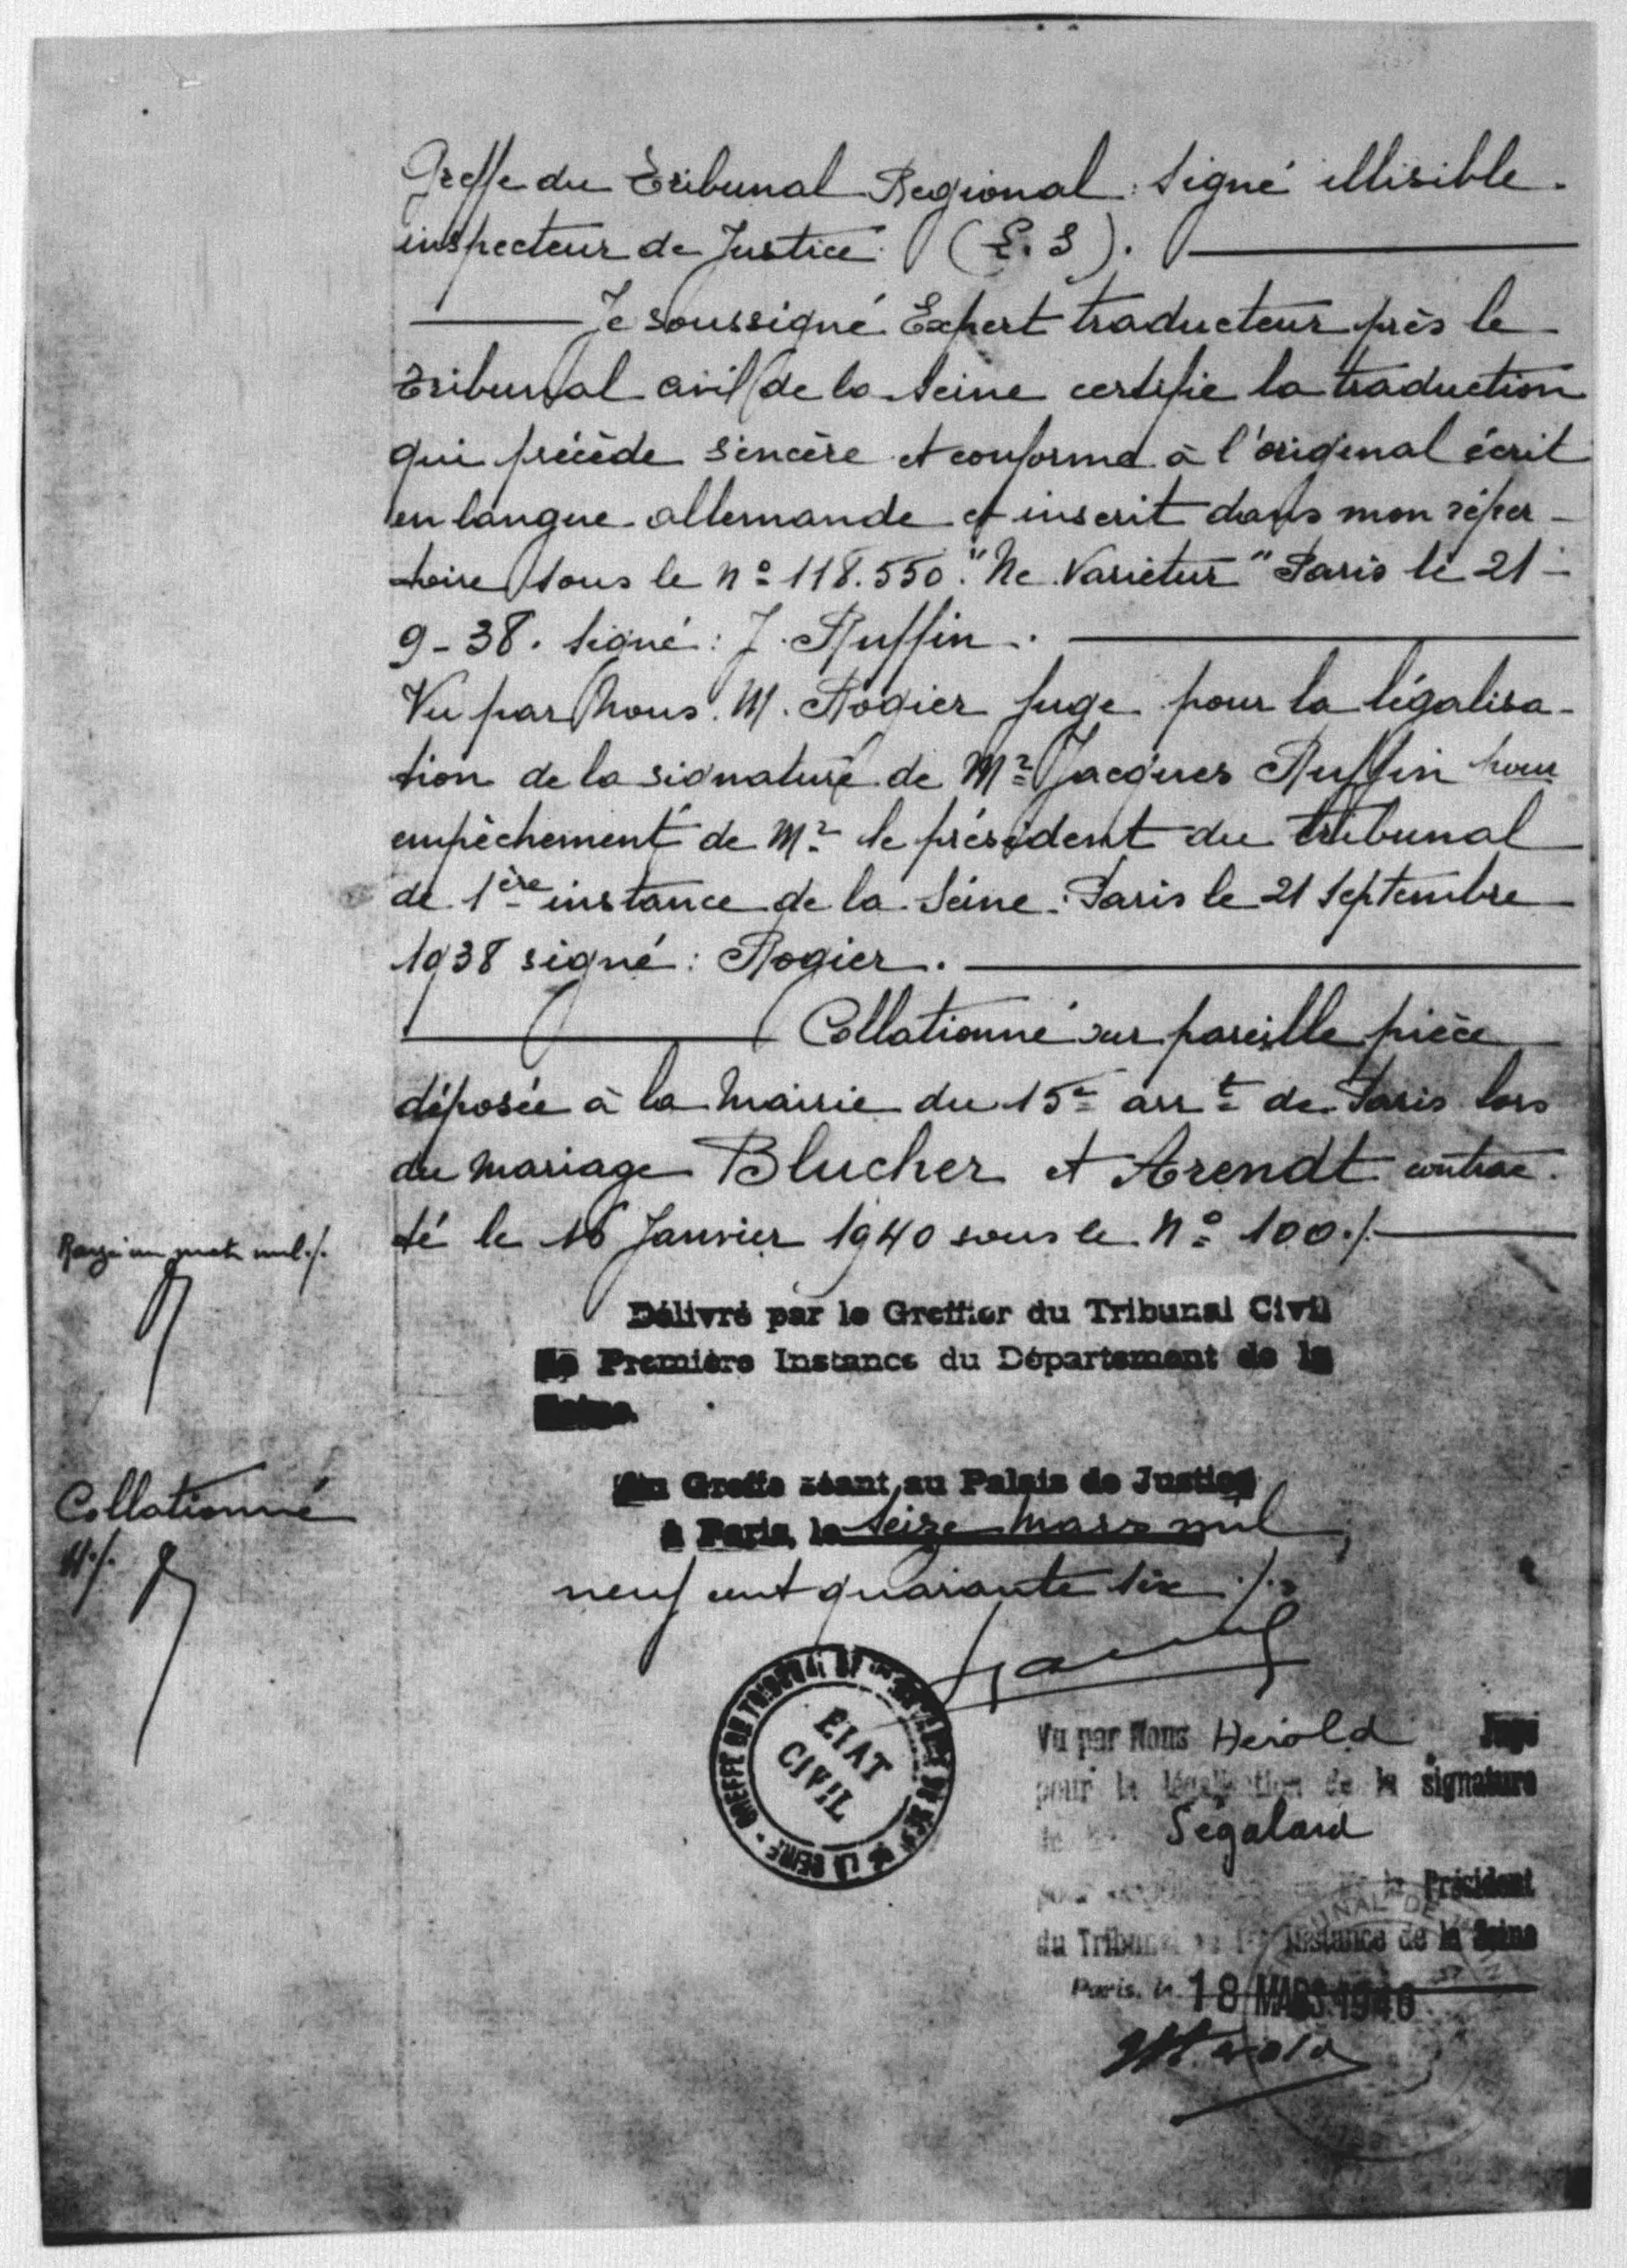 Greffe du Tribunal Regional : Signé illisible.
inspecteur de Justice. (L. S).
Je soussigné Expert traducteur près le
Tribunal civil de la Seine certifie la traduction
qui précède sincère et conforme à l'original écrit
en langue allemande et inscrit dans mon réper-
toire sous le nº 118.550. "Ne Varietur" Paris le 21-
9-38. Signé : J. Ruffin.
Vu par Nous. M. Rogier Juge pour la légalisa-
tion de la signature de Mr Jacques Ruffin pour
empêchement de Mr le président du tribunal
de 1ère instance de la Seine. Paris le 21 Septembre
1938 signé : Rogier.
Collationné sur pareille pièce
déposée à la Mairie du 15e arrt de Paris lors
du mariage Blucher et Arendt contrac-
té le 16 Janvier 1940 sous le Nº 100./.
Rayé un mot nul./.
Délivré par le Greffier du Tribunal Civil
de Première Instance du Département de la
Seine.
Au Greffe séant au Palais de Justice
à Paris, le Seize Mars mil
neuf cent quarante six ./.
Collationné
ETAT
CIVIL
GREFFE DU TRIBUNAL DE LA SEINE
Vu par Nous Herold Juge
pour la légalisation de la signature
de Ségalard
Président
du Tribunal de 1re Instance de la Seine
Paris, le 18 MARS 1946
Herold